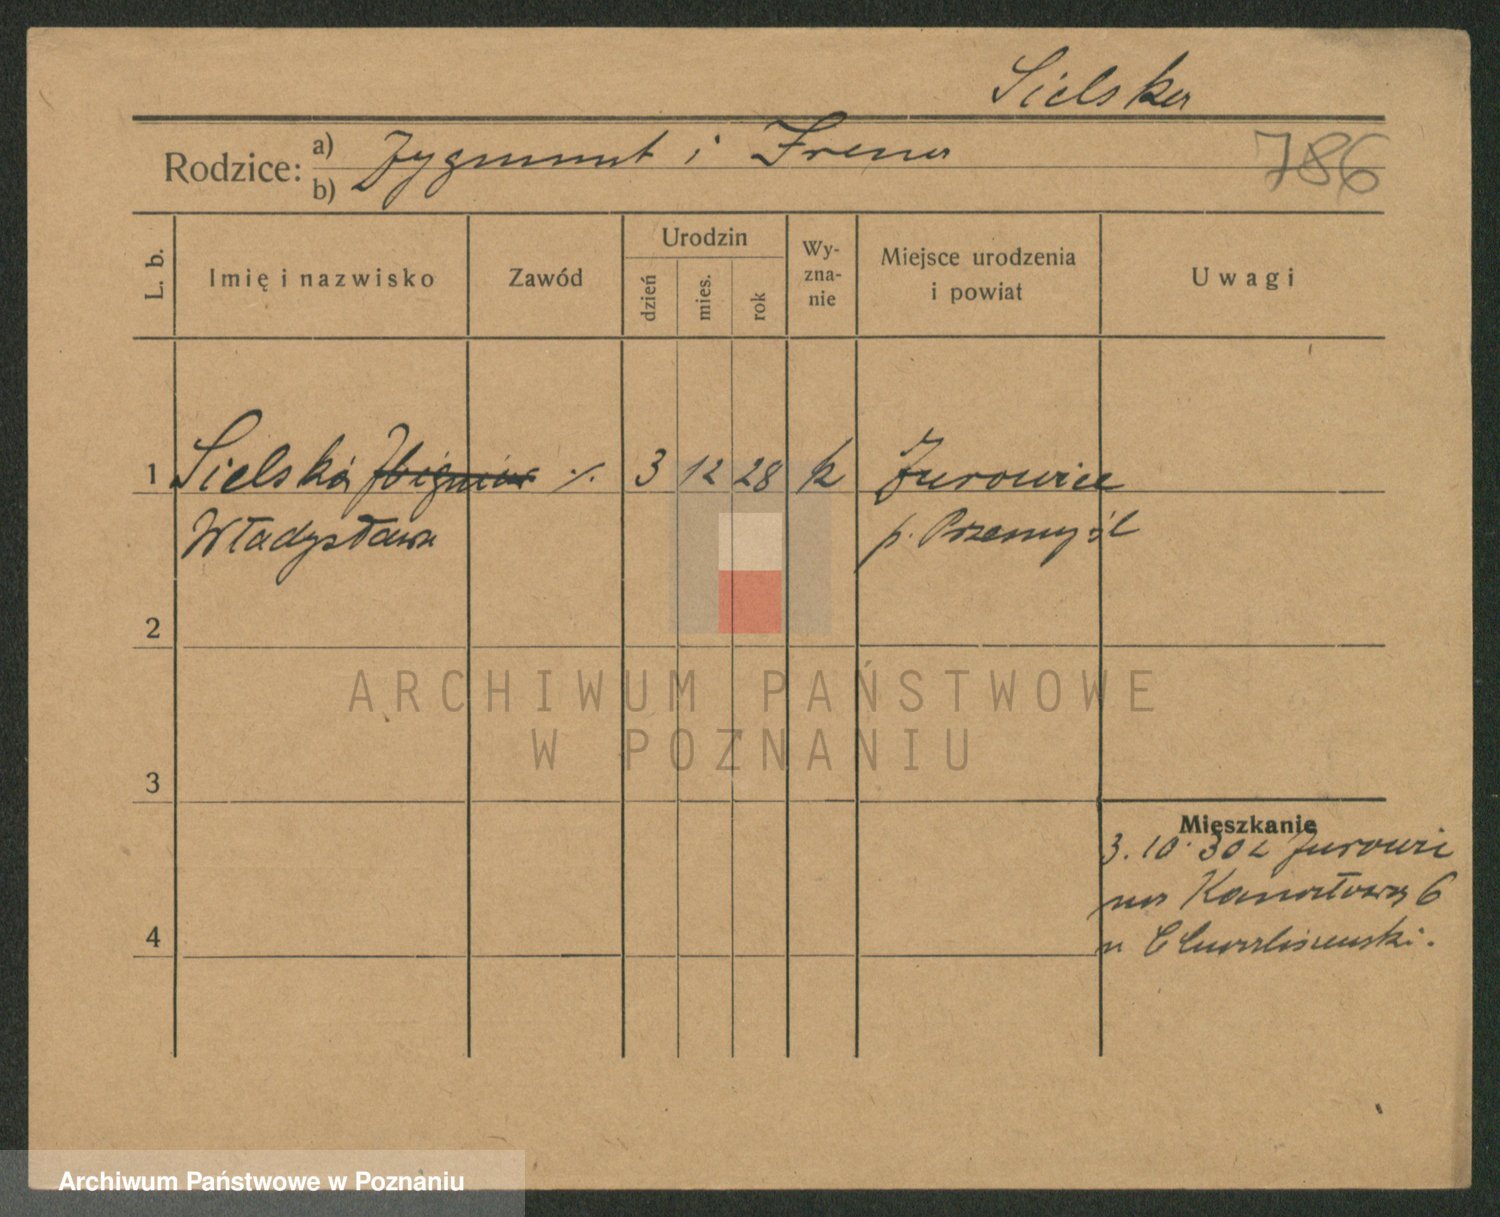 Sielska
Rodzice: a) b) Zygmunt i Irena
786
L. b.
Imię i nazwisko
Zawód
Urodzin
dzień
mies.
rok
Wy-
zna-
nie
Miejsce urodzenia
i powiat
Uwagi
1 Sielska Zbigniew ./. 3 12 28 k Żurowice
Władysława p. Przemyśl
2
3
4
Mieszkanie
3.10.30 z Żurowic
na Kanałowa 6
u
ARCHIWUM PAŃSTWOWE
W POZNANIU
Archiwum Państwowe w Poznaniu